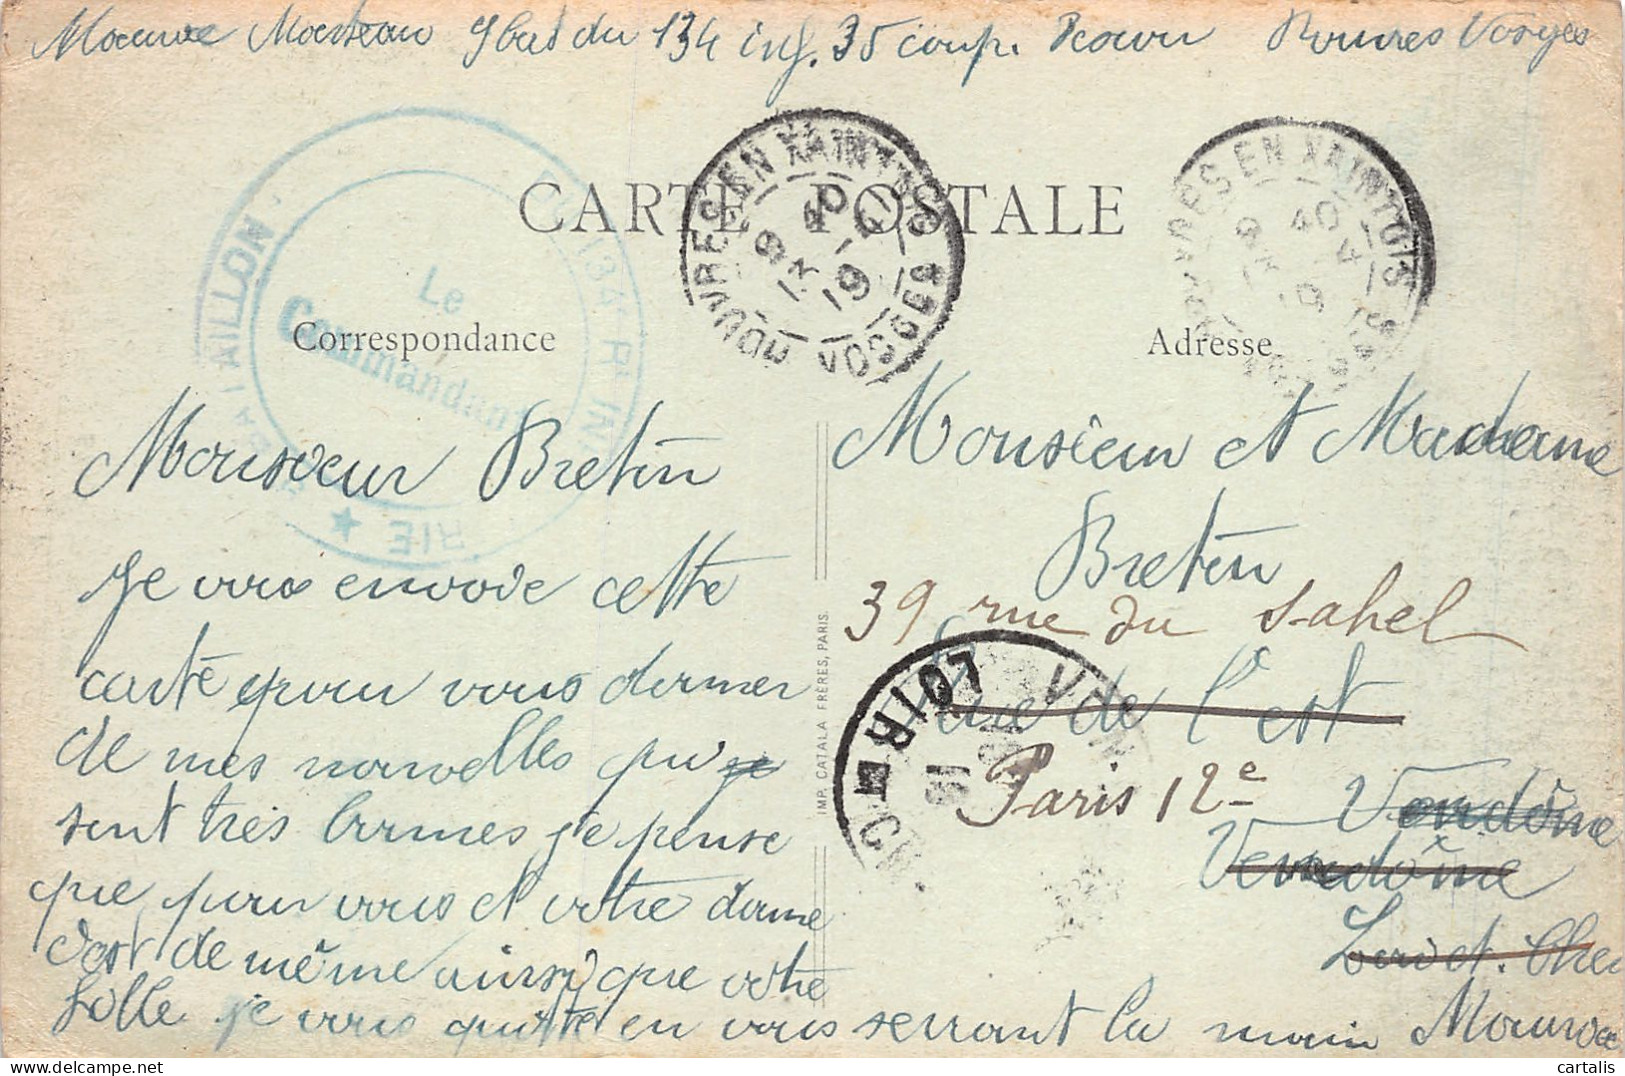 Maurice Marteau 9 bat du 134 inf. 35 comp. Rouvres Vosges
CARTE POSTALE
BATAILLON . 134e R. INFANTERIE ★
Le
Commandant
ROUVRES EN XAINTOIS VOSGES
9 40
13 -4
19
ROUVRES EN XAINTOIS VOSGES
9 40
13 -4
19
Correspondance
Adresse
Monsieur Bretin
Je vous envoie cette
carte pour vous donner
de mes nouvelles qui
sont très bonnes je pense
que pour vous et votre dame
c'est de même ainsi que votre
folle je vous quitte en vous serrant la main Maurice
Monsieur et Madame
Bretin
39 rue du Sahel
Rue de l'est
Paris 12e
Vendôme
Vendôme
Loir et Cher
LOIR ET CHER
IMP. CATALA FRÈRES, PARIS.
cartalis
www.delcampe.net